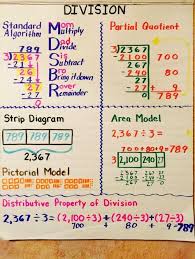 DIVISION
Standard
Algorithm
Mom
Multiply
Dad
Divide
Sis
Subtract
Bro
Bring it down
Rover
Remainder
789
3 2367
Partial Quotient
3 2,367
-2,100 700
267
-240 80
27
-27 9
0 789
Strip Diagram
789 789 789
2,367
Area Model
2,367÷3=
700+80+9=789
3 2,100 240 27
Pictorial Model
Distributive Property of Division
2,367÷3=(2,100÷3)+(240÷3)+(27÷3)
700 + 80 + 9 =789